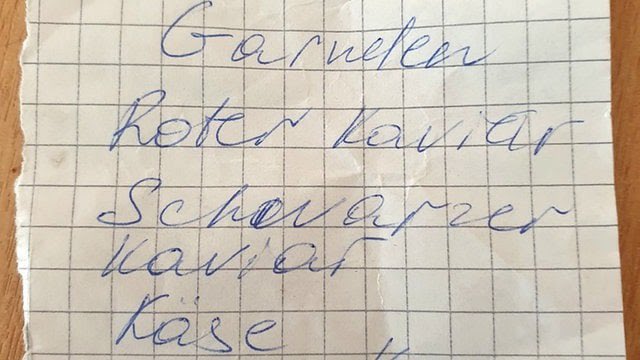 Garnelen
Roter Kaviar
Schwarzer
Kaviar
Käse